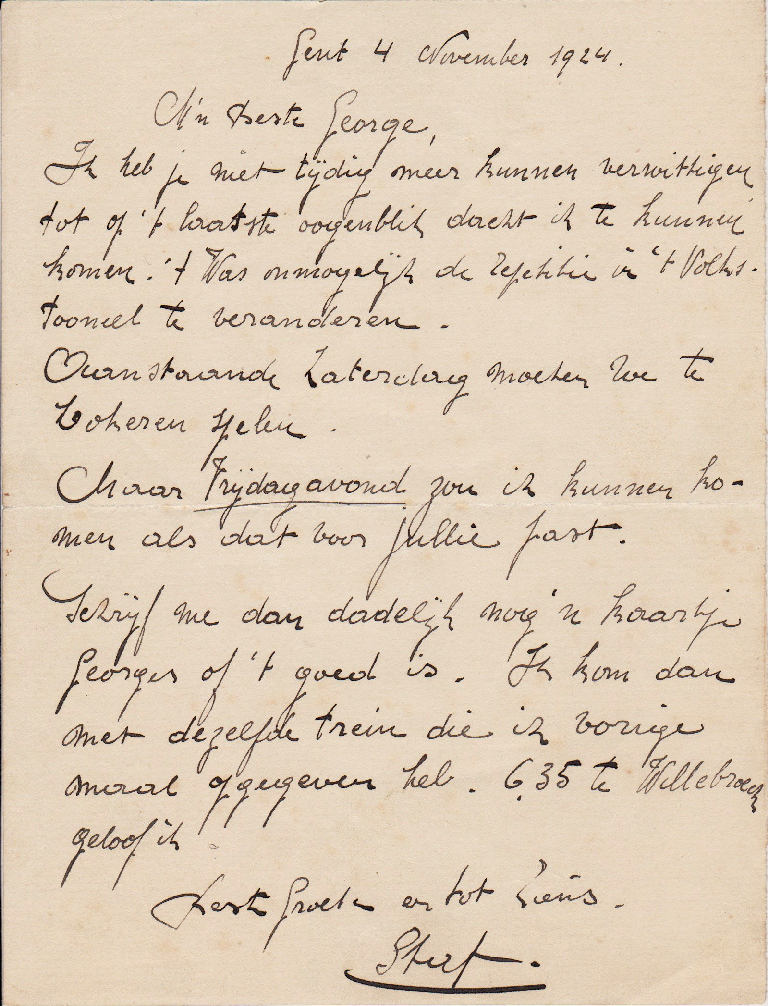 Gent 4 November 1924.
M'n beste George,
Ik heb je niet tijdig meer kunnen verwittigen
tot op 't laatste oogenblik dacht ik te kunnen
komen. 't Was onmogelijk de repetitie in 't Volks-
tooneel te veranderen.
Aanstaande Zaterdag moeten we te
Lokeren spelen.
Maar Vrijdagavond zou ik kunnen ko-
men als dat voor jullie past.
Schrijf me dan dadelijk nog 'n kaartje
Georges of 't goed is. Ik kom dan
met dezelfde trein die ik vorige
maal opgegeven heb. 6.35 te Willebroeck
geloof ik
Beste Groeten en tot ziens.